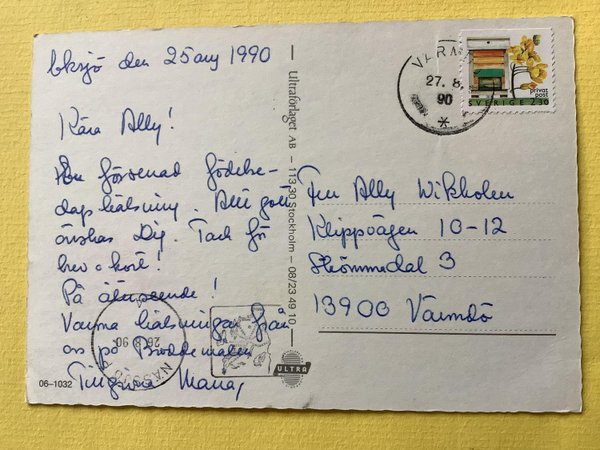 den 25 aug 1990
Kära Ally!
En försenad födelse-
dagshälsning. Allt gott
önskas Dig. Tack för
brev o kort!
På återseende!
Varma hälsningar från
oss på
06-1032
Ultraförlaget AB - 113 30 Stockholm - 08/23 49 10
ULTRA
26.8.90
VÄRM
27.8.
90
*
privat
post
SVERIGE 2.30
Fru Ally Wikholm
Klippvägen 10-12
Strömmadal 3
13900 Värmdö